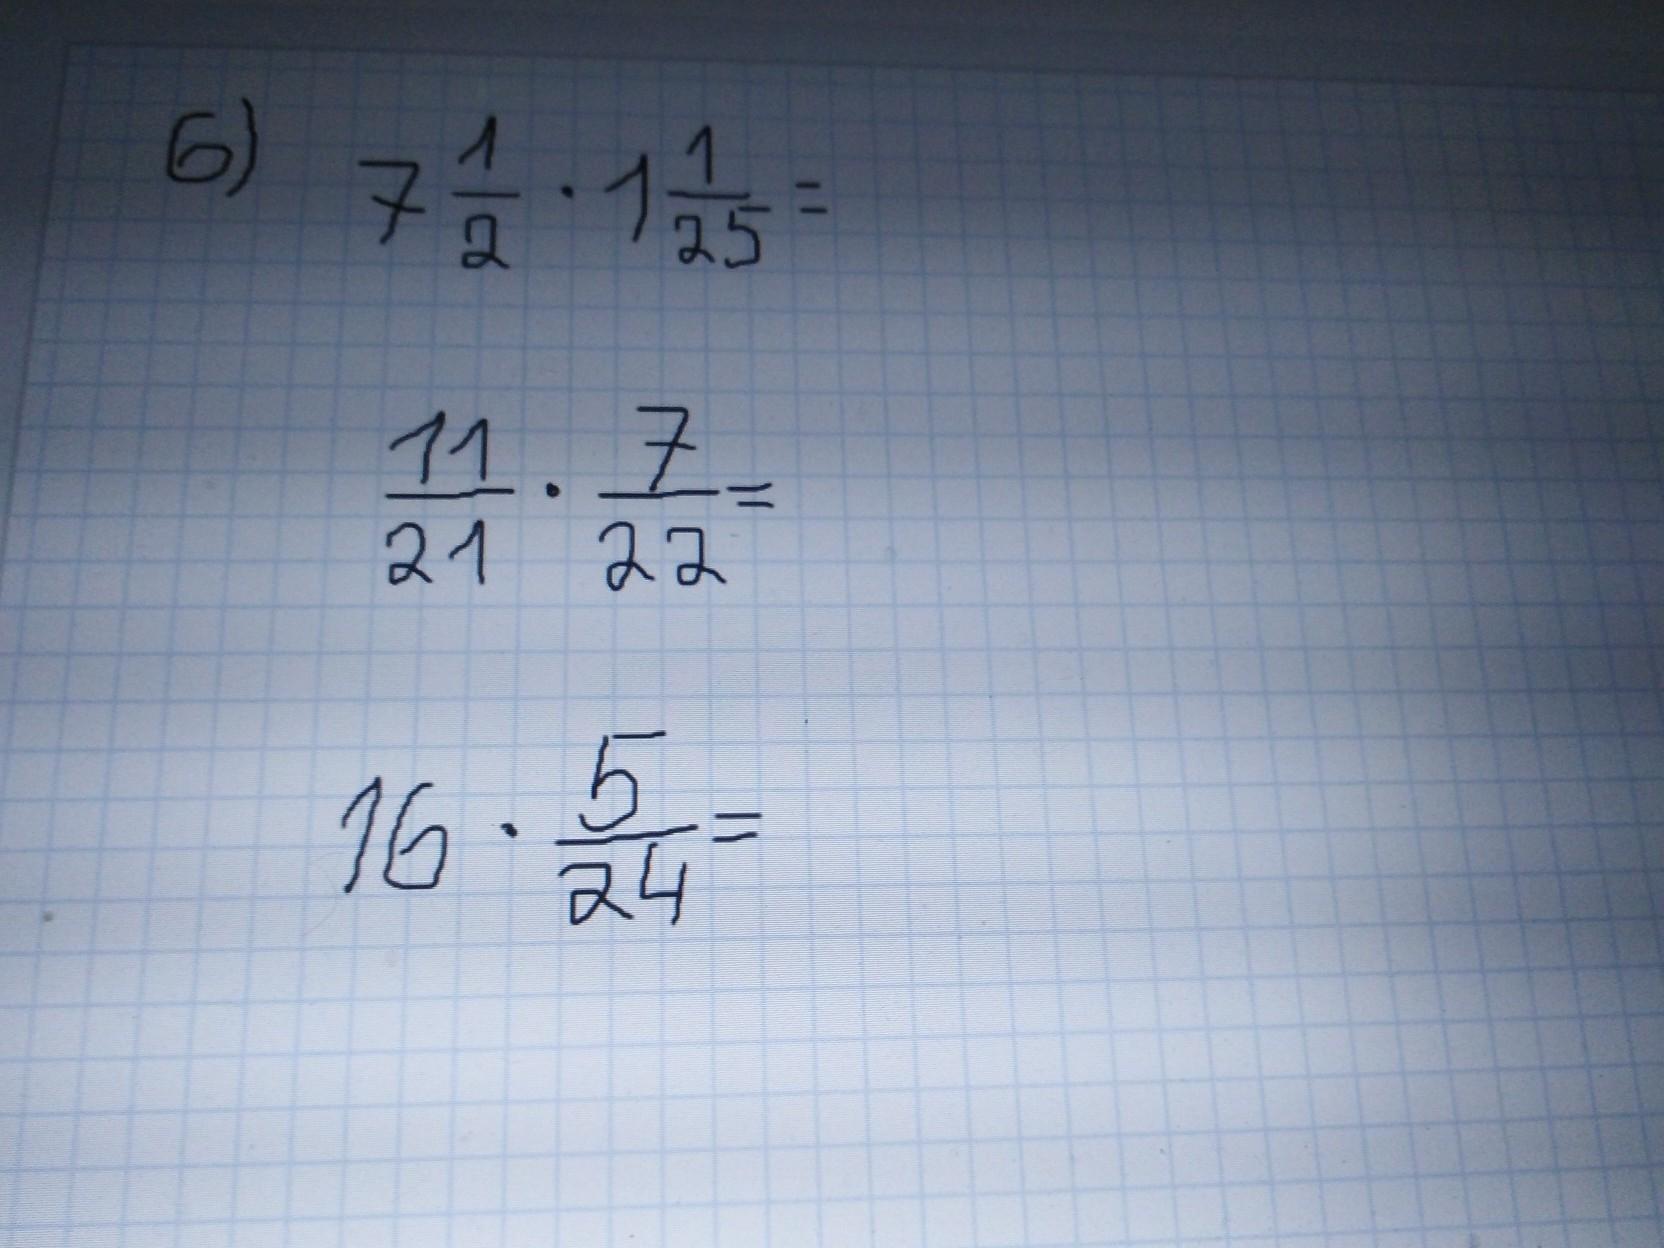 б) 7 1/2 · 1 1/25 =
11/21 · 7/22 =
16 · 5/24 =